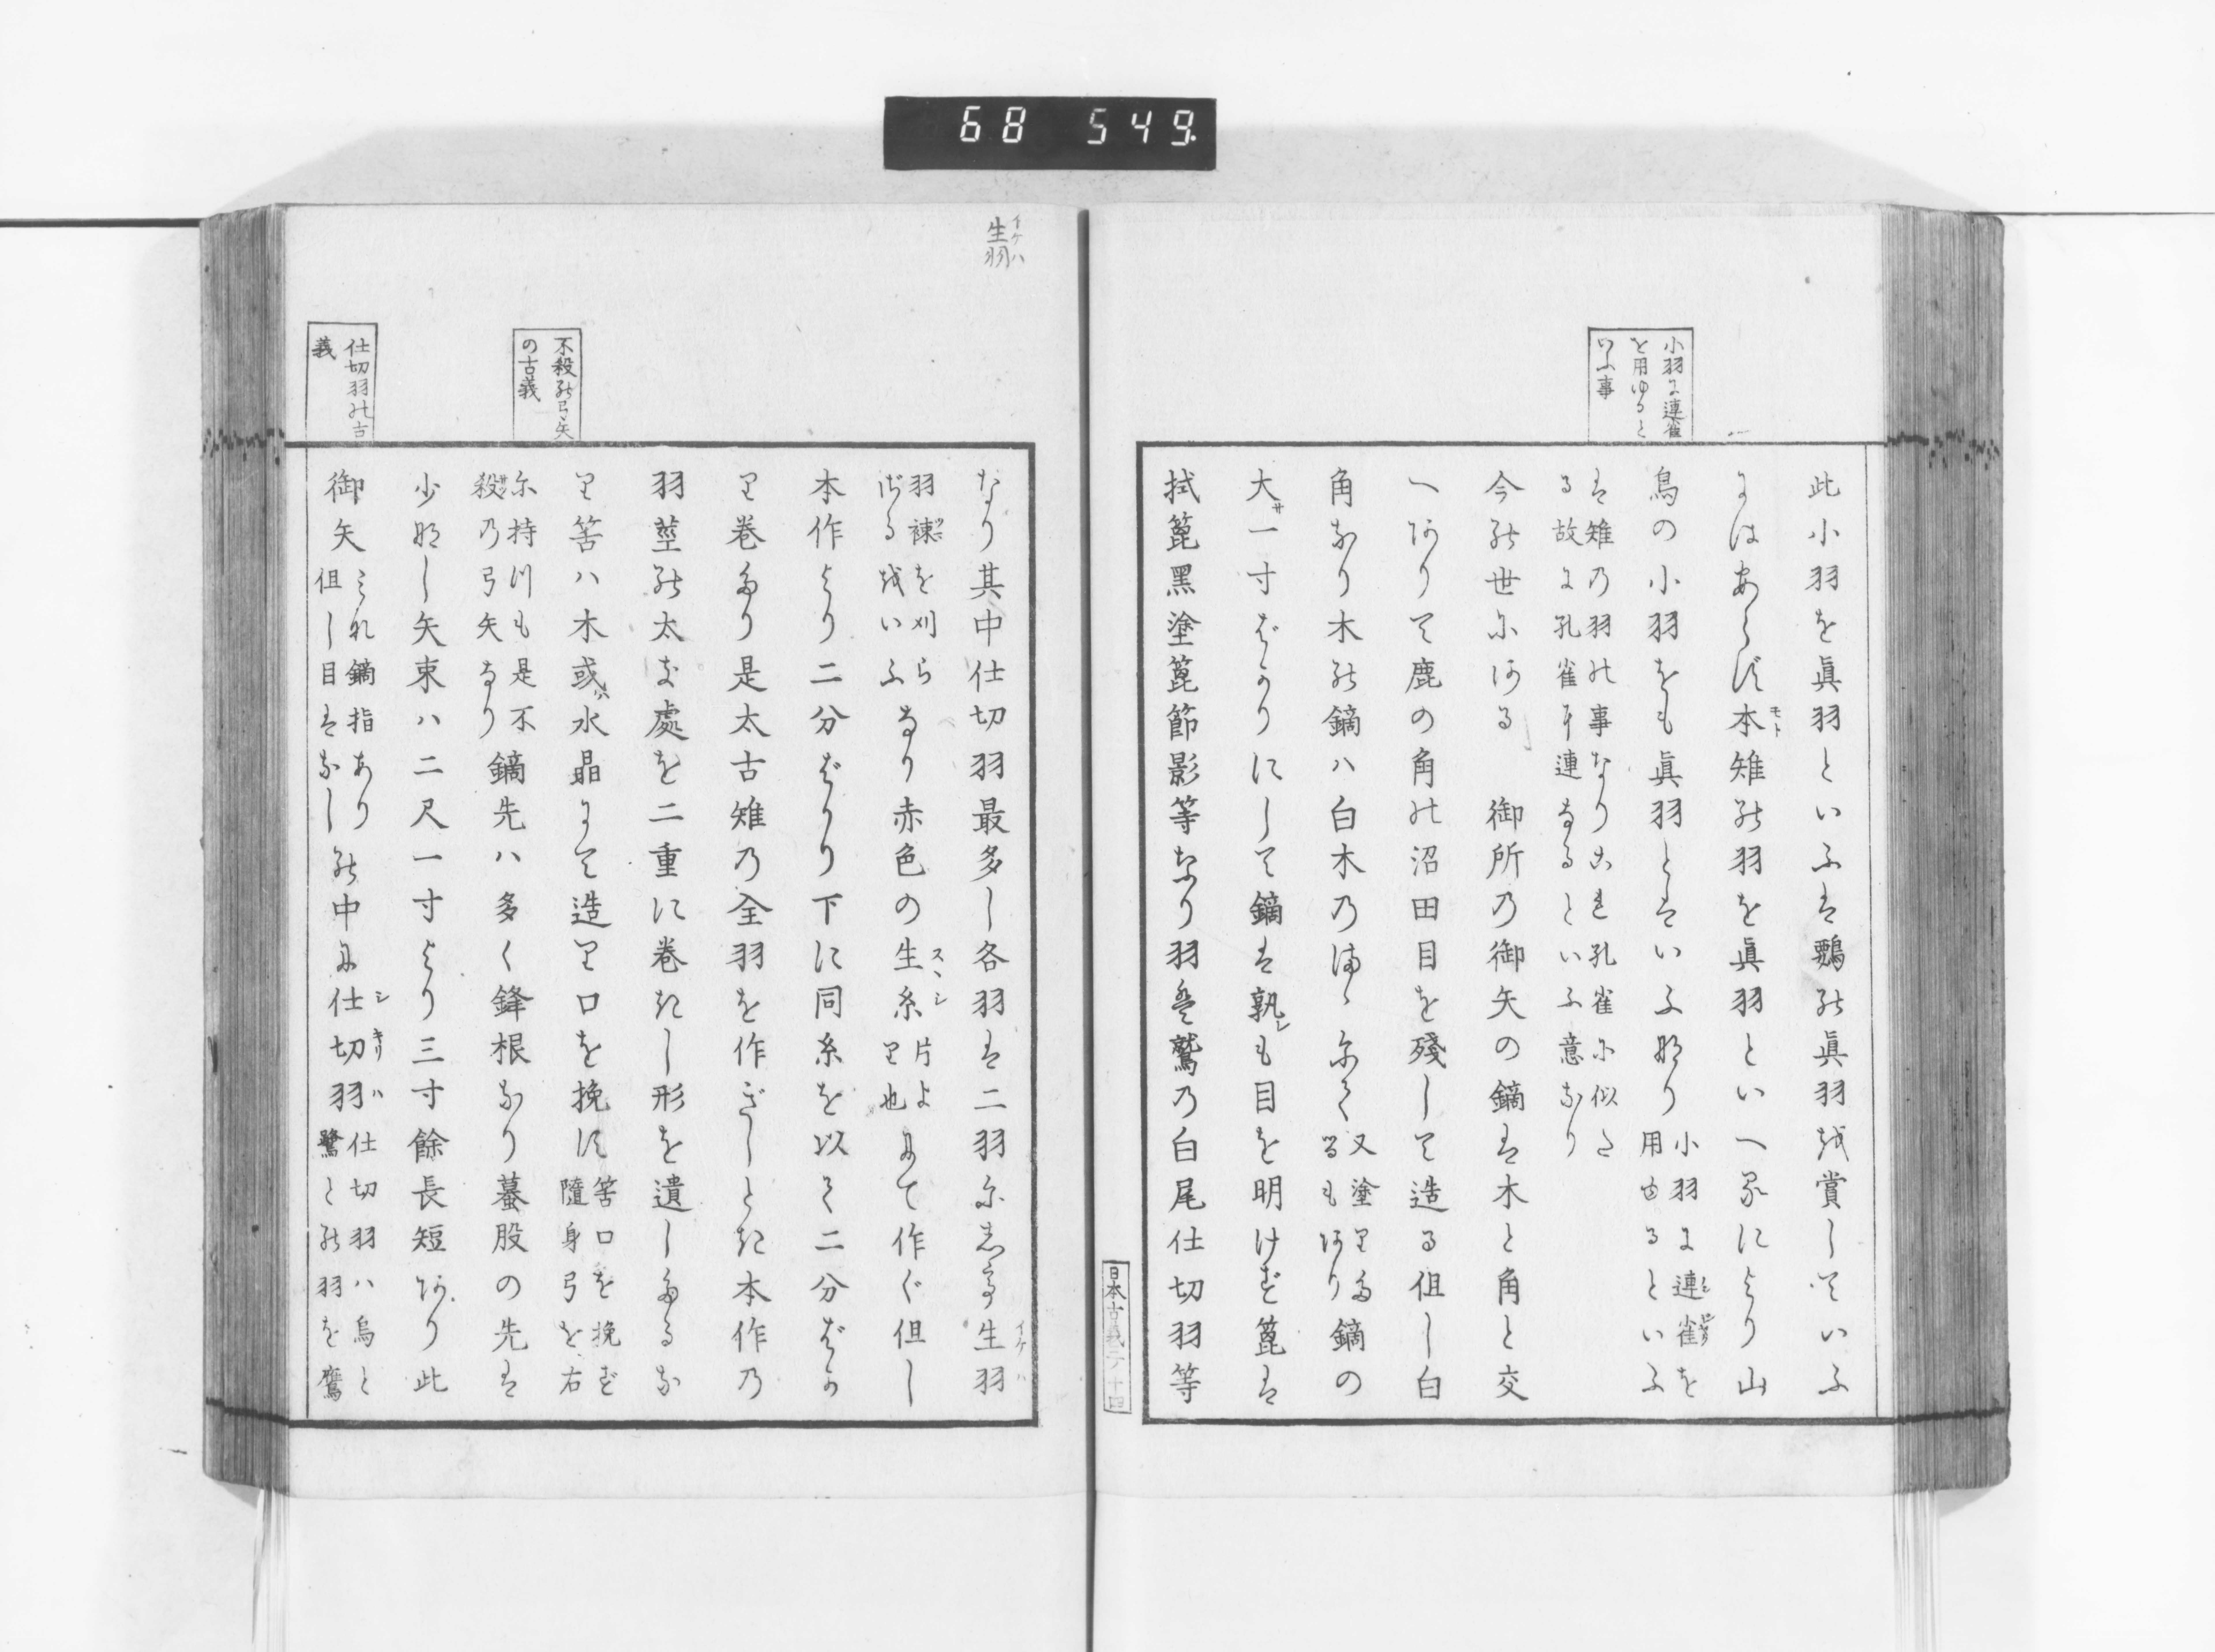 68 549.
小羽に連雀
を用ゆると
いふ事
此小羽を眞羽といふは鶚の眞羽越賞していふ
にはあらず本雉の羽を眞羽といへるにより山
モト
鳥の小羽をも眞羽とはいふ也り小羽に連雀を
用由るといふ
は雉乃羽の事なりこれ孔雀に似た
る故に孔雀に連なるといふ意なり
今の世にある 御所乃御矢の鏑は木と角と交
へありて鹿の角の沼田目を殘して造る但し白
角なり木の鏑ハ白木乃侭ゝにて又塗りた
るもあり鏑の
大サ一寸ばかりにして鏑は孰レも目を明けず箆は
拭箆黑塗箆節影等なり羽は鷲乃白尾仕切羽等
日本古義三ノ十四
生羽
イケハ
なり其中仕切羽最多し各羽は二羽にして生羽
イケハ
羽裏を刈ら
ざる越いふなり赤色の生糸片よ
り也にて作ぐ但し
スヽシ
本作より二分ばかり下に同糸を以て二分ばか
り卷たり是太古雉乃全羽を作ぎしとき本作乃
羽莖の太き處を二重に卷きし形を遺したるな
り筈ハ木或ハ水晶にて造り口を挽に筈口を挽ず
隨身弓を右
不殺の弓矢
の古義
に持川も是不
殺乃弓矢なり鏑先ハ多く鋒根なり蟇股の先は
少那し矢束ハ二尺一寸より三寸餘長短あり此
仕切羽の古
義
御矢これ鏑指あり
但し目はなしの中に仕切羽仕切羽ハ鳥と
鷺との羽を鷹
シキリハ